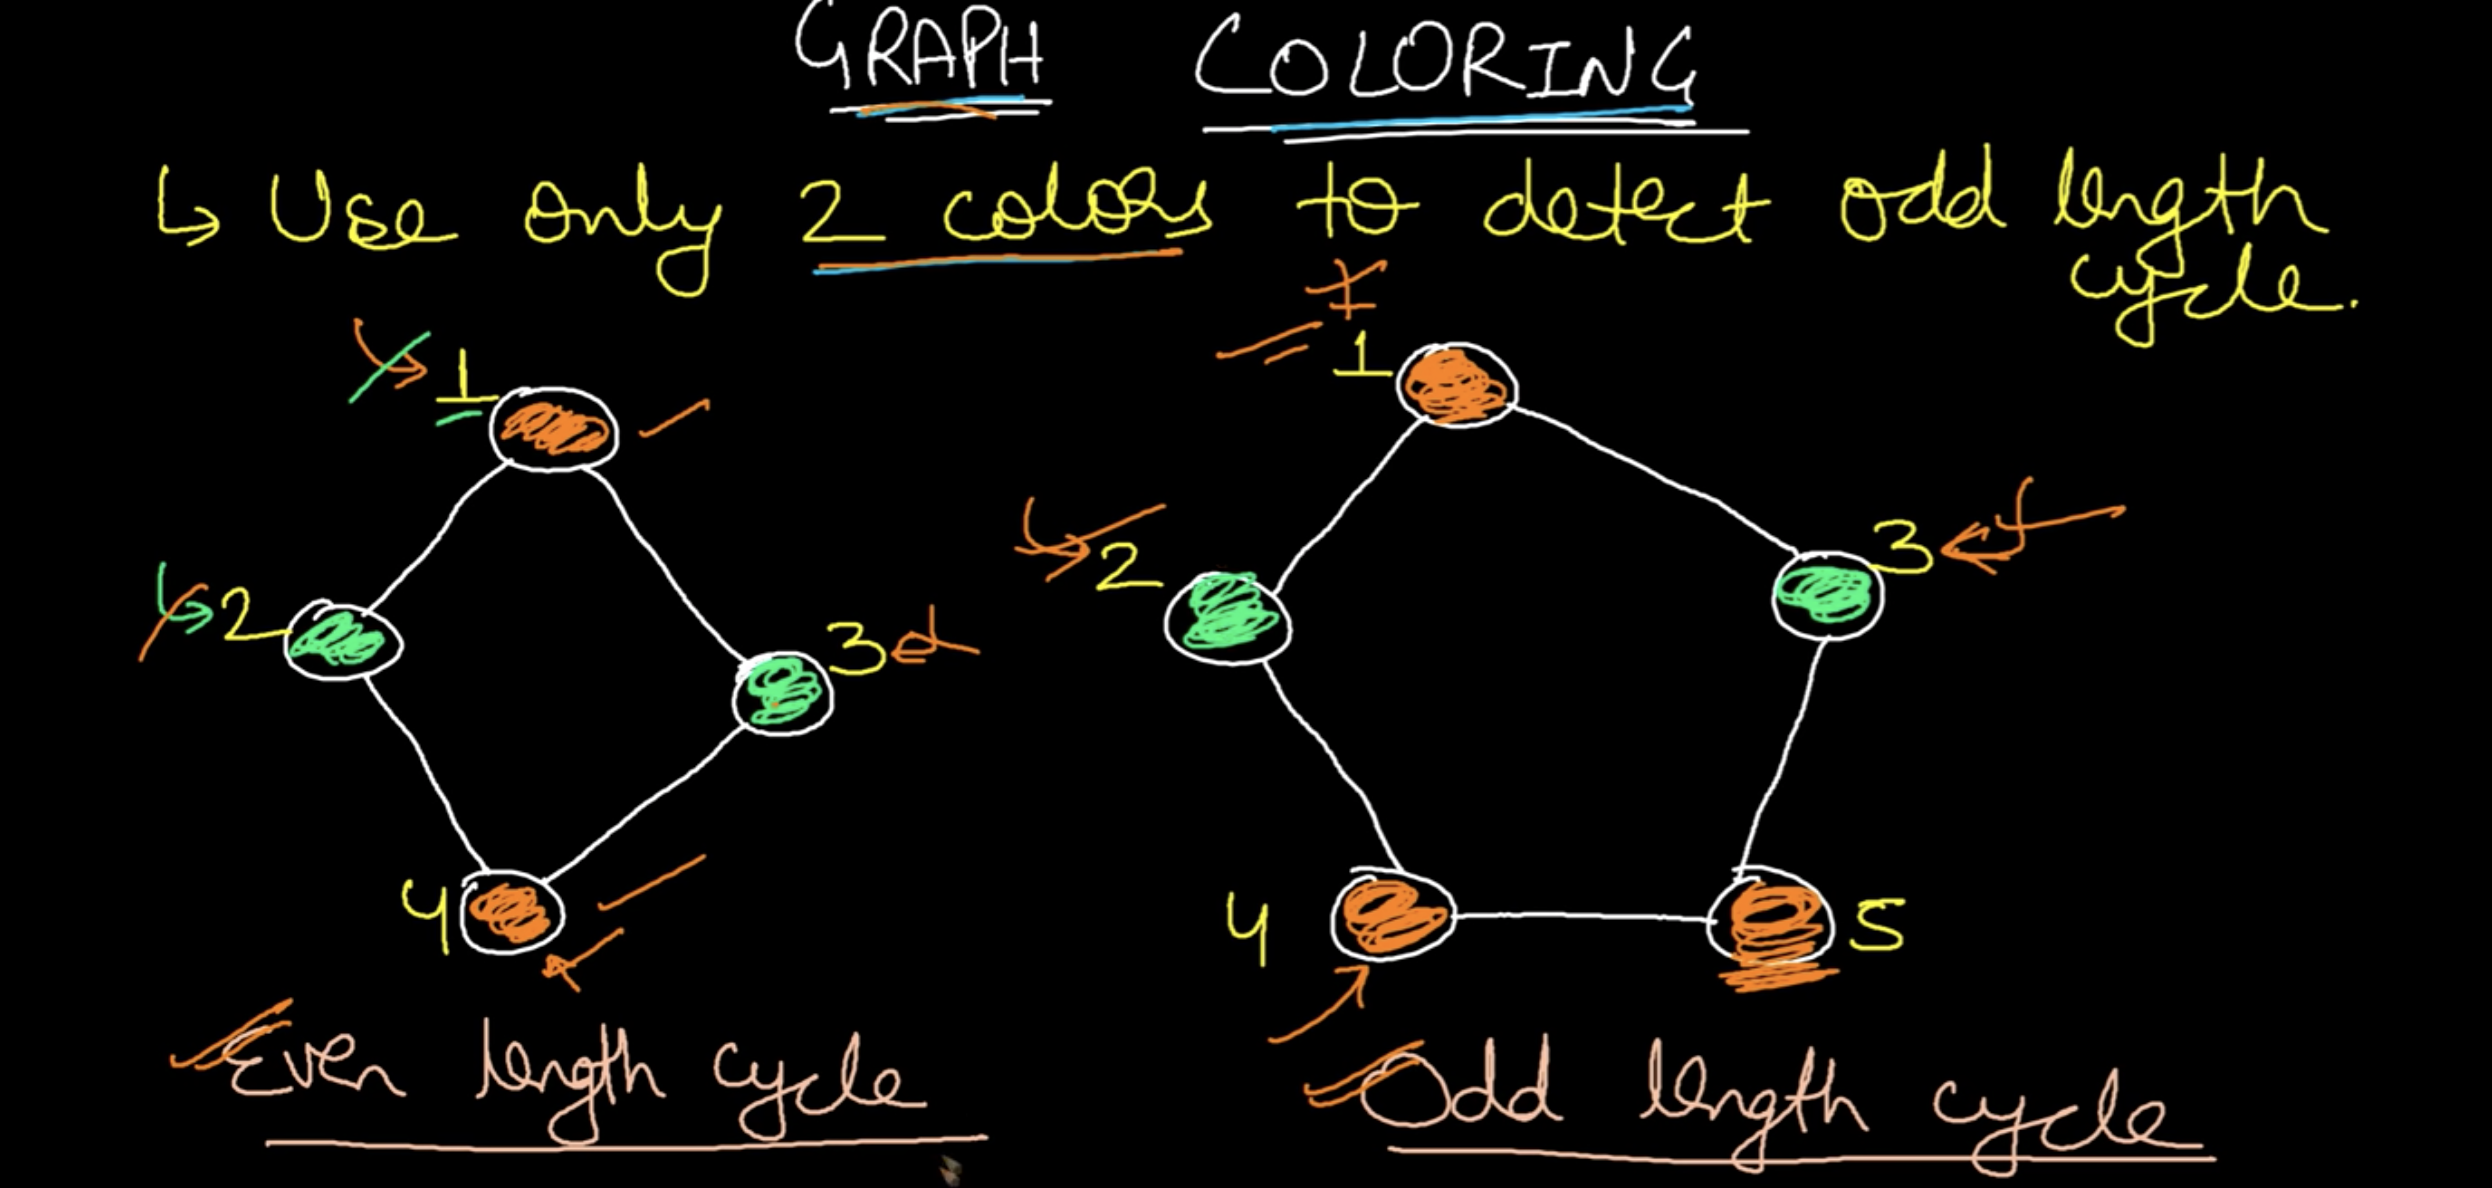 GRAPH COLORING
↳ Use only 2 colors to detect odd length
cycle.
1
2
3
4
1
2
3
4
5
Even length cycle
Odd length cycle